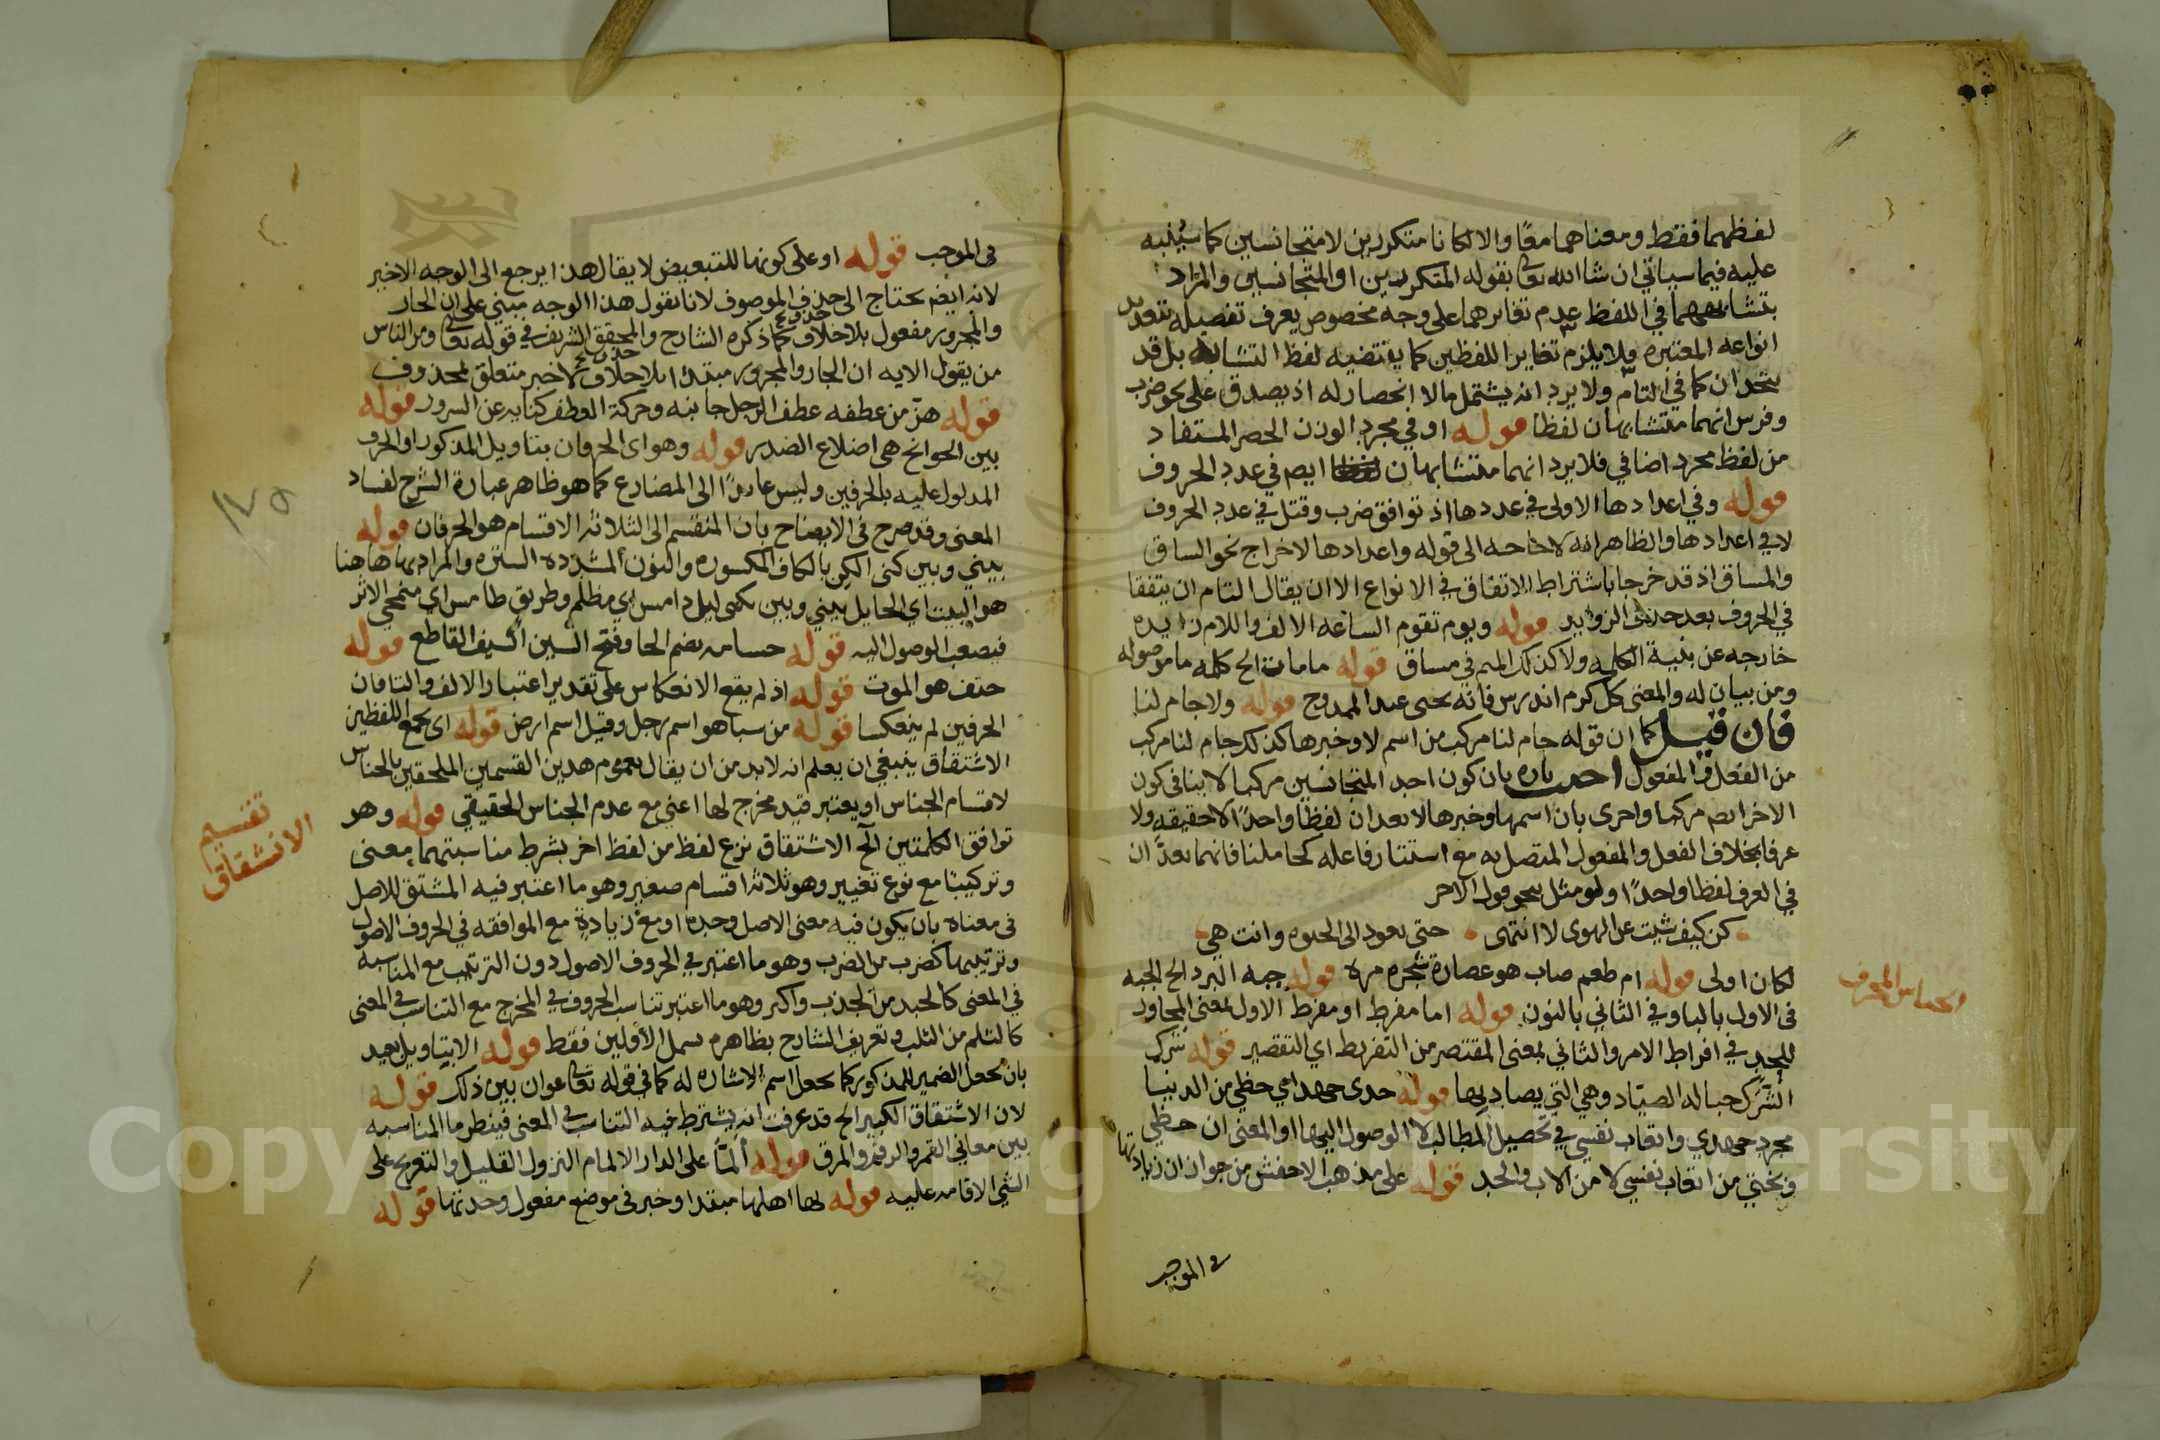 لفظهما فقط ومعناهما معًا والا لكانا متكررين لا متجانسين كما سينبه
عليه فيما سياتي ان شا الله تعا بقوله المتكررين او المتجانسين والمراد
بتشابههما في اللفظ عدم تغايرهما على وجه مخصوص يعرف تفصيله بتعديد
انواعه المعتبره ولا يلزم تغاير اللفظين كما يقتضيه لفظ التشابه بل قد
يتحدان كما في التام ولا يرد انه يشتمل مالا انحصار له اذ يصدق على نحو ضرب
وفرس انهما متشابهان لفظا قوله او في مجرد الوزن الحصر المستفاد
من لفظ مجرد اضافي فلا يرد انهما متشابهان ايضم في عدد الحروف
قوله وفي اعدادها الاولى في عددها اذ توافق ضرب وقتل في عدد الحروف
لا في اعدادها والظاهر انه لا حاجه الى قوله واعدادها لاخراج نحو الساق
والمساق اذ قد خرجا باشتراط الاتفاق في الانواع الا ان يقال التام ان يتفقا
في الحروف بعد حذف الزوايد قوله ويوم تقوم الساعه الالف واللام زايده
خارجه عن بنية الكلمه ولا كذلك الميم في مساق قوله ما مات الح كلمه ما موصوله
ومن بيان له والمعنى كل كرم اندرس فانه يحيى عند الممدوح قوله ولا جام لنا
فان قيل كما ان قوله جام لنا مركب من اسم لا وخبرها كذلك جام لنا مركب
من الفعل والمفعول احب بانه بان كون احد المتجانسين مركبا لا ينافي كون
الاخر ايضم مركبا واحرى بان اسمها وخبرها لا يعدان لفظا واحدًا لا حقيقة ولا
عرفا بخلاف الفعل والمفعول المتصل به مع استتار فاعله كجاملنا فانهما يعدان
في العرف لفظا واحدًا ولو مثل بنحو قول الاخر
كن كيف شيت عن الهوى لا انتهى حتى يعود الى الحيوه وانت هي
لكان اولى قوله ام طعم صاب هو عصارة شجره مره قوله جبه البرد الح الجبه
في الاول بالبا وفي الثاني بالنون قوله اما مفرط او مفرط الاول بمعنى المجاوز
للحد في افراط الامر والثاني بمعنى المقتصر من التفريط اي التقصير قوله شرك
الشرك حباله الصياد وهي التي يصاد بها قوله جدى جهدا مي حظي من الدنيا
مجرد جهدي واتعاب نفسي في تحصيل المطالب لا الوصول اليها او المعنى ان حظي
وبختي من اتعاب نفسي لا من الاب والجد قوله على مذهب الاخفش من جواز ان زيادتها
في الموجب
الجناس المحرف
في الموجب قوله او على كونها للتبعيض لا يقال هذا يرجع الى الوجه الاخير
لانه ايضم يحتاج الى حذف الموصوف لانا نقول هذا الوجه مبني على ان الجار
والمجرور مفعول بلا خلاف كما ذكره الشارح والمحقق الشريف في قوله تعا ومن الناس
من يقول الايه ان الجار والمجرور مبتدا بلا خلاف لا خبر متعلق بمحذوف
قوله هز من عطفه عطف الرجل جانبه وحركة العطف كنايه عن السرور قوله
بين الجوانح هي اضلاع الصدر قوله وهو اي الحرفان بتاويل المذكور او الحرف
المدلول عليه بالحرفين وليس عايدًا الى المضارع كما هو ظاهر عبارة الشرح لفساد
المعنى وقد صرح في الايضاح بان المنقسم الى الثلاثه الاقسام هو الحرفان قوله
بيني وبين كنى الكن بالكاف المكسوره والنون المشدده الستره والمراد بها هاهنا
هو البيت اي الحايل بيني وبين كنى ليل دامس اي مظلم وطريق طامس اي منمحي الاثر
فيصعب الوصول اليه قوله حسامه بضم الحا وفتح السين السيف القاطع قوله
حتف هو الموت قوله اذ لم يقع الانعكاس على تقدير اعتبار الالف والتا فان
الحرفين لم ينعكسا قوله من سبا هو اسم رجل وقيل اسم ارض قوله اي يجمع اللفظين
الاشتقاق ينبغي ان يعلم انه لا بد من ان يقال بعموم هذين القسمين الملحقين بالجناس
لاقسام الجناس او يعتبر قيد مخرج لها اعني مع عدم الجناس الحقيقي قوله وهو
توافق الكلمتين الح الاشتقاق نزع لفظ من لفظ اخر بشرط مناسبتهما معنى
وتركيبا مع نوع تغيير وهو ثلاثه اقسام صغير وهو ما اعتبر فيه المشتق للاصل
في معناه بان يكون فيه معنى الاصل وحده او مع زيادة مع الموافقه في الحروف الاصول
وترتيبها كضرب من الضرب وهو ما اعتبر في الحروف الاصول دون الترتيب مع المناسبه
في المعنى كالجبد من الجذب واكبر وهو ما اعتبر تناسب الحروف في المخرج مع التناسب في المعنى
كالثلم من الثلب وتعريف الشارح بظاهره يشمل الاولين فقط قوله الا بتاويل بعيد
بان يجعل الضمير للمذكور كما يجعل اسم الاشاره له كما في قوله تعا عوان بين ذلك قوله
لان الاشتقاق الكبير الح قد عرفت انه يشترط فيه التناسب في المعنى فينظر ما المناسبه
بين معاني القمر والرقم والمرق قوله المّا على الدار الالمام النزول القليل والتعريج على
الشي الاقامه عليه قوله لها اهلها مبتدا وخبر في موضع مفعول وجدتها قوله
تقسيم
الاشتقاق